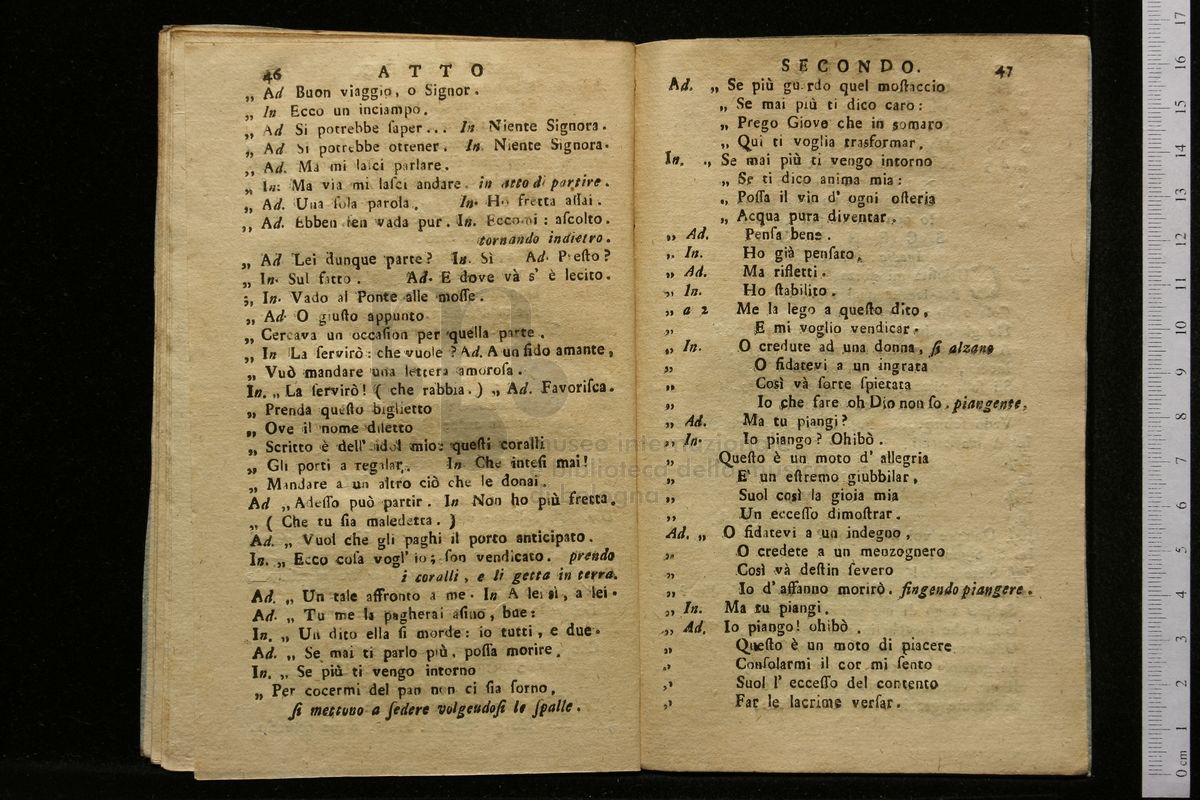 46 ATTO
„ Ad Buon viaggio, o Signor.
„ In Ecco un inciampo.
„ Ad Si potrebbe ſaper... In Niente Signora.
„ Ad Si potrebbe ottener. In. Niente Signora.
„ Ad. Ma mi laſci parlare.
„ In: Ma via mi laſci andare. in atto di partire.
„ Ad. Una ſola parola. In. Ho fretta aſſai.
„ Ad. Ebben ſen vada pur. In. Eccomi: aſcolto.
tornando indietro.
„ Ad Lei dunque parte? In. Sì. Ad. Preſto?
„ In. Sul fatto. Ad. E dove và s' è lecito.
„ In. Vado al Ponte alle moſſe.
„ Ad. O giuſto appunto
„ Cercava un occaſion per quella parte.
„ In La ſervirò: che vuole? Ad. A un fido amante,
„ Vuò mandare una lettera amoroſa.
In. „ La ſervirò! (che rabbia.) „ Ad. Favoriſca.
„ Prenda queſto biglietto
„ Ove il nome diletto
„ Scritto è dell' idol mio: queſti coralli
„ Gli porti a regalar. In. Che inteſi mai!
„ Mandare a un altro ciò che le donai.
Ad „ Adeſſo può partir. In Non ho più fretta.
„ (Che tu ſia maledetta.)
Ad. „ Vuol che gli paghi il porto anticipato.
In. „ Ecco coſa vogl' io; ſon vendicato. prendo
i coralli, e li getta in terra.
Ad. „ Un tale affronto a me. In A lei sì, a lei.
Ad. „ Tu me la pagherai aſino, bue:
In. „ Un dito ella ſi morde: io tutti, e due.
Ad. „ Se mai ti parlo più, poſſa morire.
In. „ Se più ti vengo intorno
„ Per cocermi del pan non ci ſia forno,
ſi mettono a ſedere volgendoſi le ſpalle.
SECONDO. 47
Ad. „ Se più guardo quel moſtaccio
„ Se mai più ti dico caro:
„ Prego Giove che in somaro
„ Qui ti voglia trasformar,
In. „ Se mai più ti vengo intorno
„ Se ti dico anima mia:
„ Poſſa il vin d' ogni oſteria
„ Acqua pura diventar.
„ Ad. Penſa bene.
„ In. Ho già penſato,
„ Ad. Ma rifletti.
„ In. Ho ſtabilito.
„ a 2 Me la lego a queſto dito,
„ E mi voglio vendicar.
„ In. O credute ad una donna, ſi alzano
„ O fidatevi a un ingrata
„ Così và ſorte ſpietata
„ Io che fare oh Dio non ſo. piangente,
„ Ad. Ma tu piangi?
„ In. Io piango? Ohibò.
„ Queſto è un moto d' allegria
„ E' un eſtremo giubbilar,
„ Suol così la gioia mia
„ Un ecceſſo dimoſtrar.
Ad. „ O fidatevi a un indegno,
„ O credete a un menzognero
„ Così và deſtin ſevero
„ Io d' affanno morirò. fingendo piangere.
„ In. Ma tu piangi.
„ Ad. Io piango! ohibò.
„ Queſto è un moto di piacere
„ Conſolarmi il cor mi ſento
„ Suol l' ecceſſo del contento
„ Far le lacrime verſar.
museo internazionale
biblioteca della musica
bologna
0 cm 1 2 3 4 5 6 7 8 9 10 11 12 13 14 15 16 17